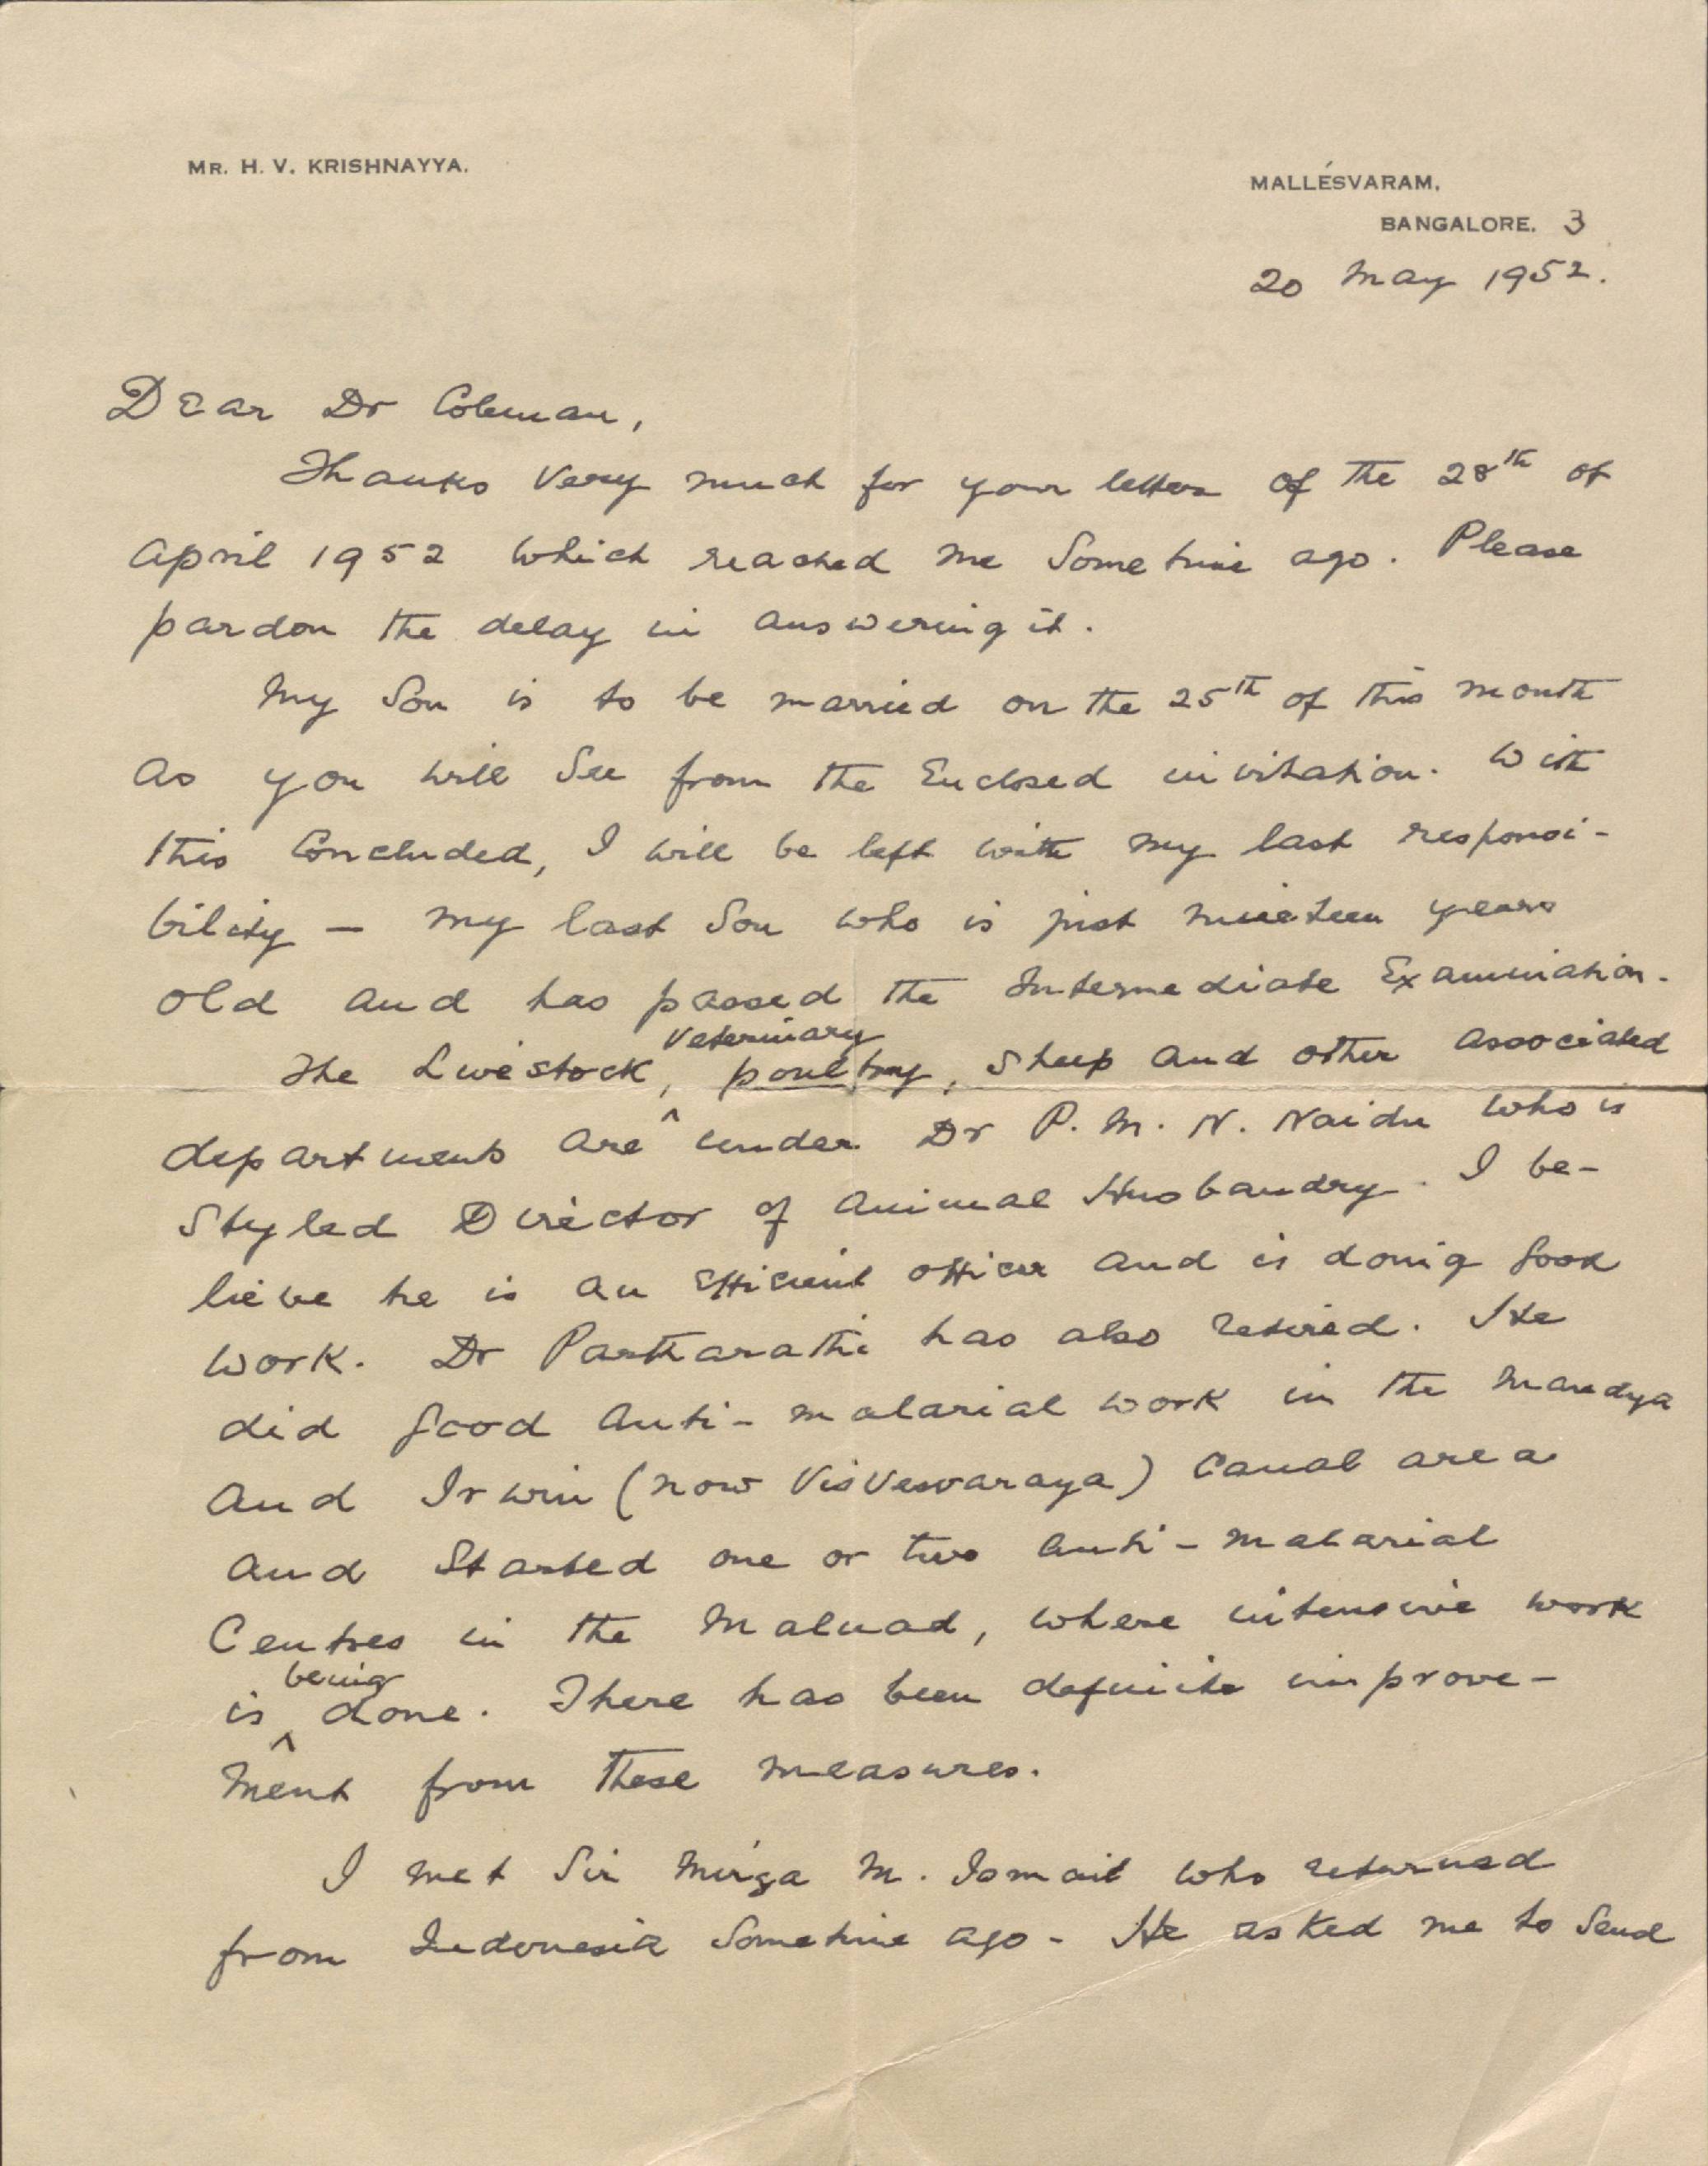 MR. H. V. KRISHNAYYA.
MALLÉSVARAM,
BANGALORE. 3
20 May 1952.
Dear Dr Coleman,
Thanks very much for your letter of the 28th of
April 1952 which reached me sometime ago. Please
pardon the delay in answering it.
My Son is to be married on the 25th of this month
as you will see from the Enclosed invitation. With
this concluded, I will be left with my last responsi-
bility — my last son who is just nineteen years
old and has passed the Intermediate Examination.
veterinary
The Livestock, ^ poultry, sheep and other associated
departments are under Dr P. M. N. Naidu who is
styled Director of Animal Husbandry. I be-
lieve he is an efficient officer and is doing good
work. Dr Partharathi has also retired. He
did good anti-malarial work in the Mandya
and Irwin (now Visvesvaraya) Canal area
and started one or two anti-malarial
Centres in the Malnad, where intensive work
being
is ^ done. There has been definite improve-
ment from these measures.
I met Sir Mirza M. Ismail who returned
from Indonesia sometime ago - He asked me to send